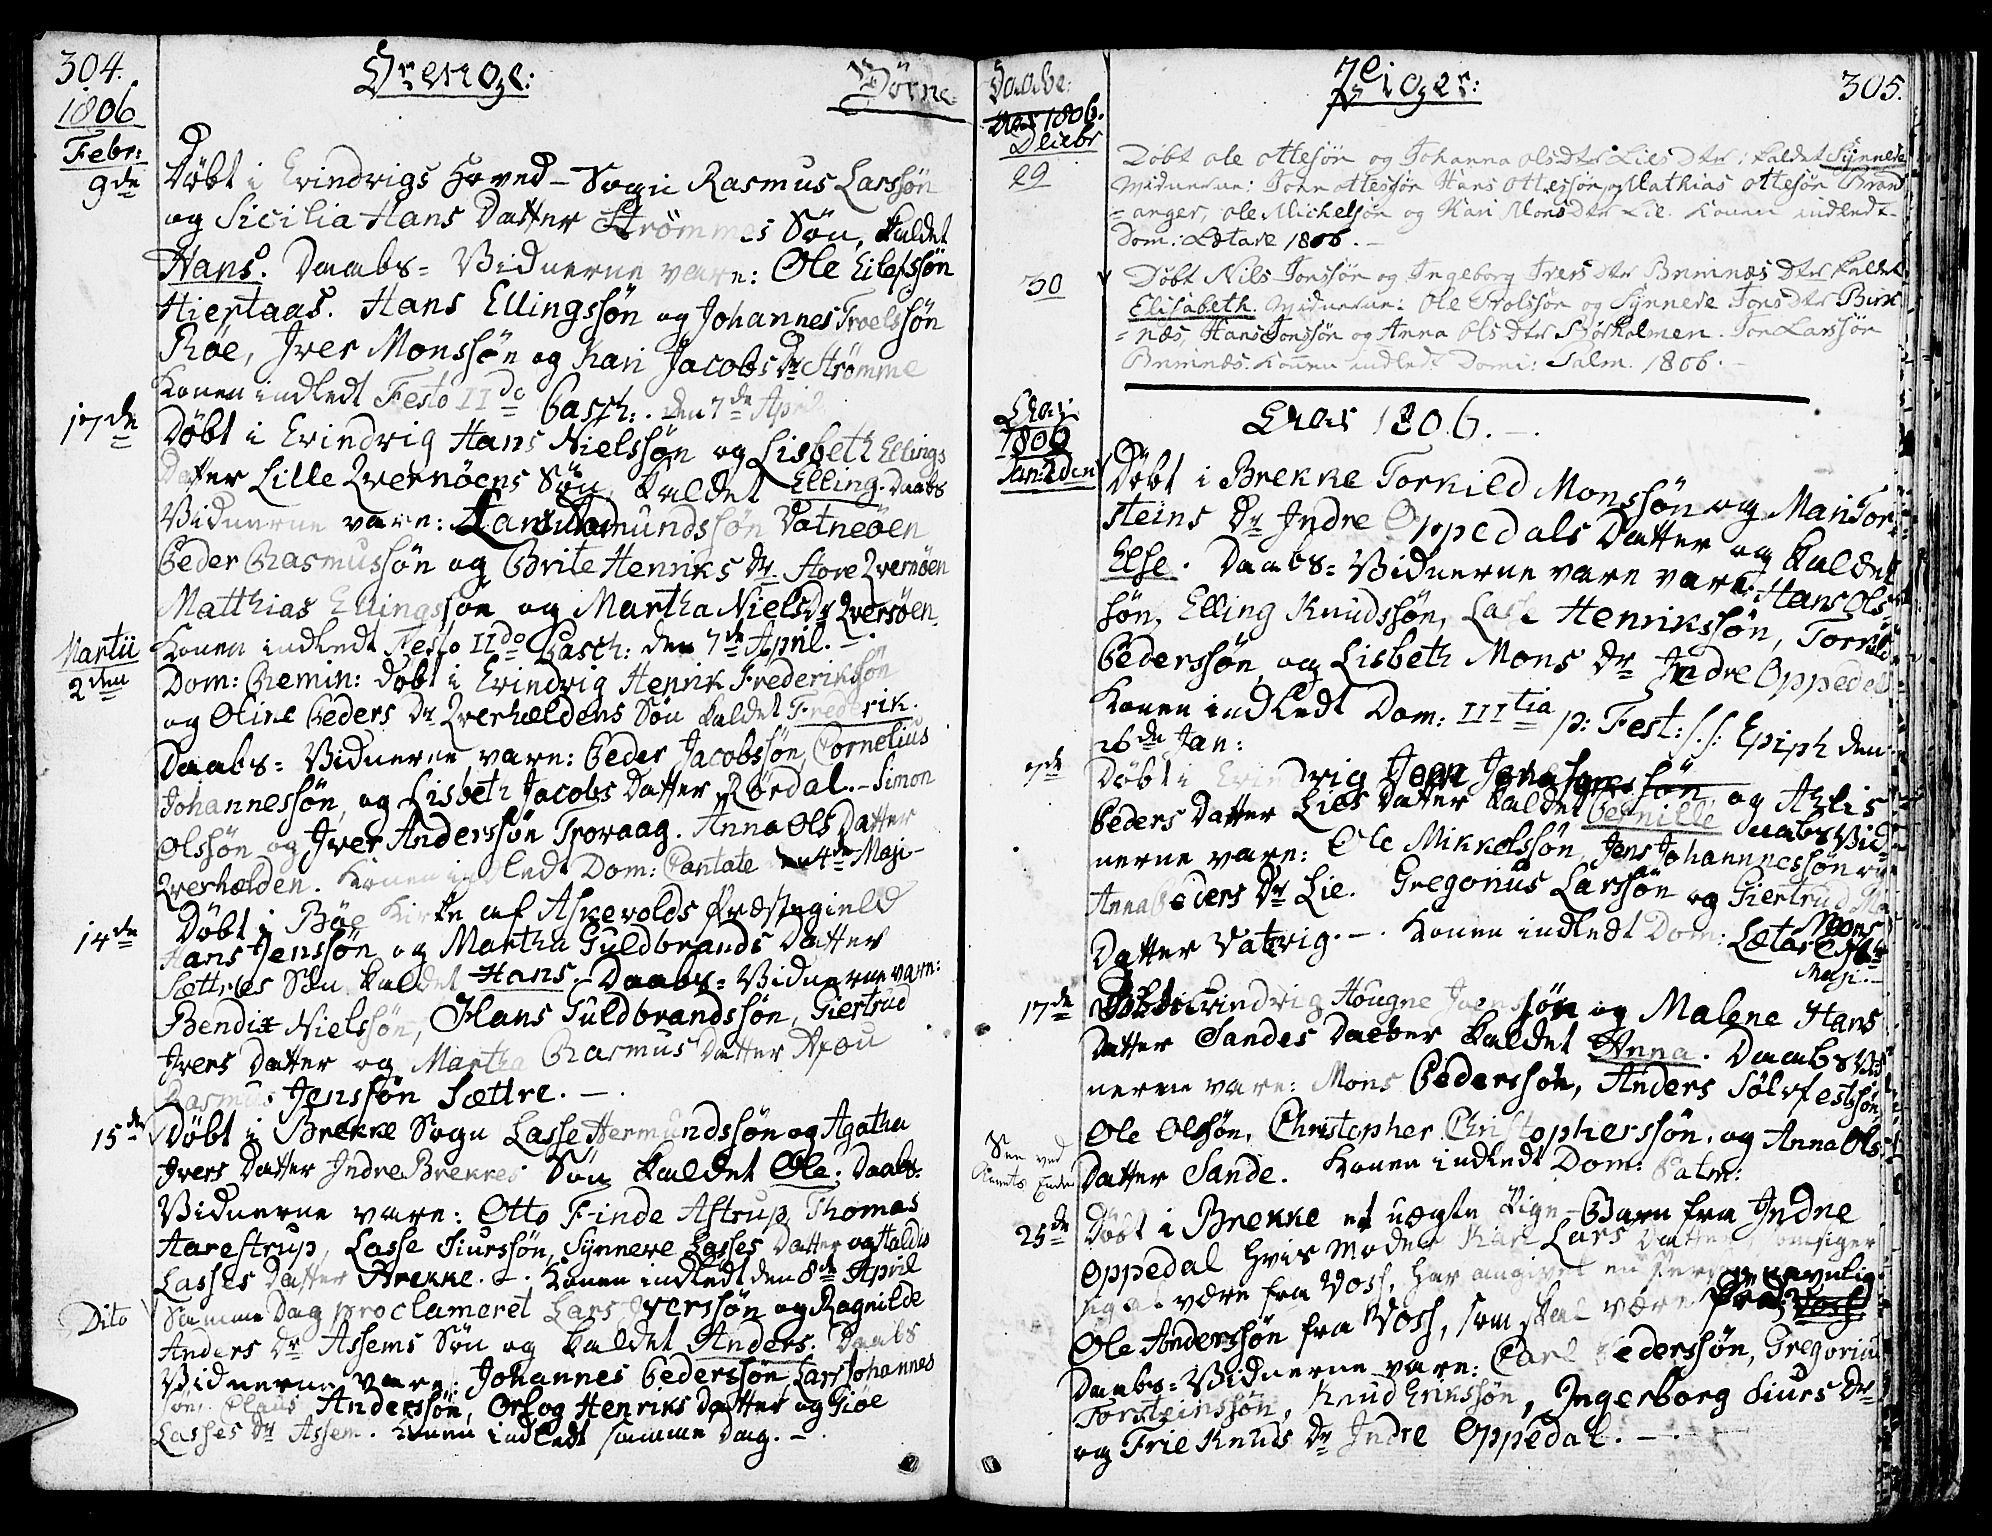 304.
Drenge:
Børne
1806
Febr:
9de
Døbt i Evindvigs Hoved-Sogn Rasmus Larssøn
og Sicilia Hans Datter Strømmes Søn, kaldet
Hans. Daabs-Vidnerne vare: Ole Eilefssøn
Hiertaas. Hans Ellingssøn og Johannes Troelssøn
Røe, Iver Monssøn og Kari Jacobs Dr Strømme
Konen indledt Festo IIdo Pasch: den 7de April
17de
Døbt i Evindvig Hans Nielssøn og Lisbeth Ellings
Datter Lille Qvernøens Søn, kaldet Elling. Daabs
Vidnerne vare: Amundssøn Vatneøen
Peder Rasmussøn og Brite Henriks Dr Store Qvernøen
Matthias Ellingssøn og Martha Niels Dr Qversøen.
Konen indledt Festo IIdo Pasch: den 7de April.-
Martii
2den
Dom: Remin: Døbt i Evindvig Henrik Frederikssøn
og Oline Peders Dr Qverhældens Søn kaldet Fredrik.
Daabs-Vidnerne vare: Peder Jacobssøn, Cornelius
Johannessøn, og Lisbeth Jacobs Datter Rørdal.- Simon
Olssøn og Iver Anderssøn Tporaag. Anna Ols Datter
Qverhælden. Konen indledt Dom: Cantate den 4de Maji-
14de
Døbt i Bøe Kirke af Askevolds Præstegield
Hans Jenssøn og Martha Guldbrands Datter
Sættres Søn kaldet Hans. Daabs-Vidnerne vare:
Bendix Nielssøn, Hans Guldbrandssøn, Giertrud
Ivers Datter og Martha Rasmus Datter
Rasmus Jenssøn Sættre.-
15de
Døbt i Brekke Sogn Lasse Hermundssøn og Agatha
Ivers Datter Indre Brekkes Søn kaldet Ole: Daabs-
Vidnerne vare: Otto Finde Astrup, Thomas
Aarestrup, Lasse Siurssøn, Synneve Lasses Datter og Haldis
Lasses Datter Brekke.- Konen indledt den 8de April
Dito
Samme Dag proclameret Lars Iverssøn og Ragnilde
Anders Dr Assems Søn og kaldet Anders. Daabs
Vidnerne vare: Johannes Pederssøn, Lars Johannes
søn, Anderssøn, Orlog Henriks Datter og Giøe
Lasses Dr Assem. Konen indledt samme Dag.-
Daabe:
Piger:
305.
1806.
29
Døbt Ole Ottesøn og Johanna Olsdtr Lies Dtr: kaldet Synneve
Vidnerne: John Ottessøn Hans Ottessøn og Mathias Ottesøn Brand
=anger, Ole Michelsøn og Kari Monsdtr Lie. Konen indledt
Dom: Lætare 1806.-
30
Døbt Nils Jonssøn og Ingeborg Iversdtr Brimnæs Dtr kaldet
Elisabeth. Vidnerne: Ole Trolssøn og Synneve Jonsdtr Birk
=næs, Hans Jonssøn og Anna Olsdtr Børholmen. Jon Larssøn
Brimnæs. Konen indledt Domi: Palm. 1806.-
1806
Aar 1806.-
Døbt i Brekke Torkild Monssøn og Mari Tor
steins Dr Indre Oppedals Datter og kaldet
Else. Daabs-Vidnerne vare vare: Hans Ols
søn, Elling Knudssøn, Lasse Henrikssøn, Torkild
Pederssøn, og Lisbeth Mons Dr Indre Oppedal
Konen indledt Dom: IIItia p: Fest: s.s: Epiph den
26de Jan:
Døbt i Evindvig og Ahlis
Peders Datter Lies Datter kaldet Pernille, Daabs Vid-
nerne vare: Ole Mikkelssøn, Jens Johannnessøn og
Anna Peders Dr Lie. Gregorius Larssøn og Giertrud
Mons
Datter Vatevig.-. Konen indledt Dom: Lætare
17de
Døbt i Evindvig Hougne søn og Malene Hans
Datter Sandes Datter kaldet Anna. Daabs Vid
nerne vare: Mons Pederssøn, Anders Sølvfestssøn
Ole Olssøn, Christopher Christopherssøn, og Anna Ols
Datter Sande. Konen indledt Dom: Palm:
See ved
Aarets Ende
25de
Døbt i Brekke et uægte Pige-Barn fra Indre
Oppedal hvis Moder Kari Lars Datter som siger
sig at være fra Voss, har angivet en Person navnlig
Ole Anderssøn fra Voss, som skal være
Daabs-Vidnerne vare: Carl Pederssøn, Gregorius
Torsteinssøn, Knud Erikssøn, Ingerborg Siurs Dr
og Frie Knuds Dr Indre Oppedal.-